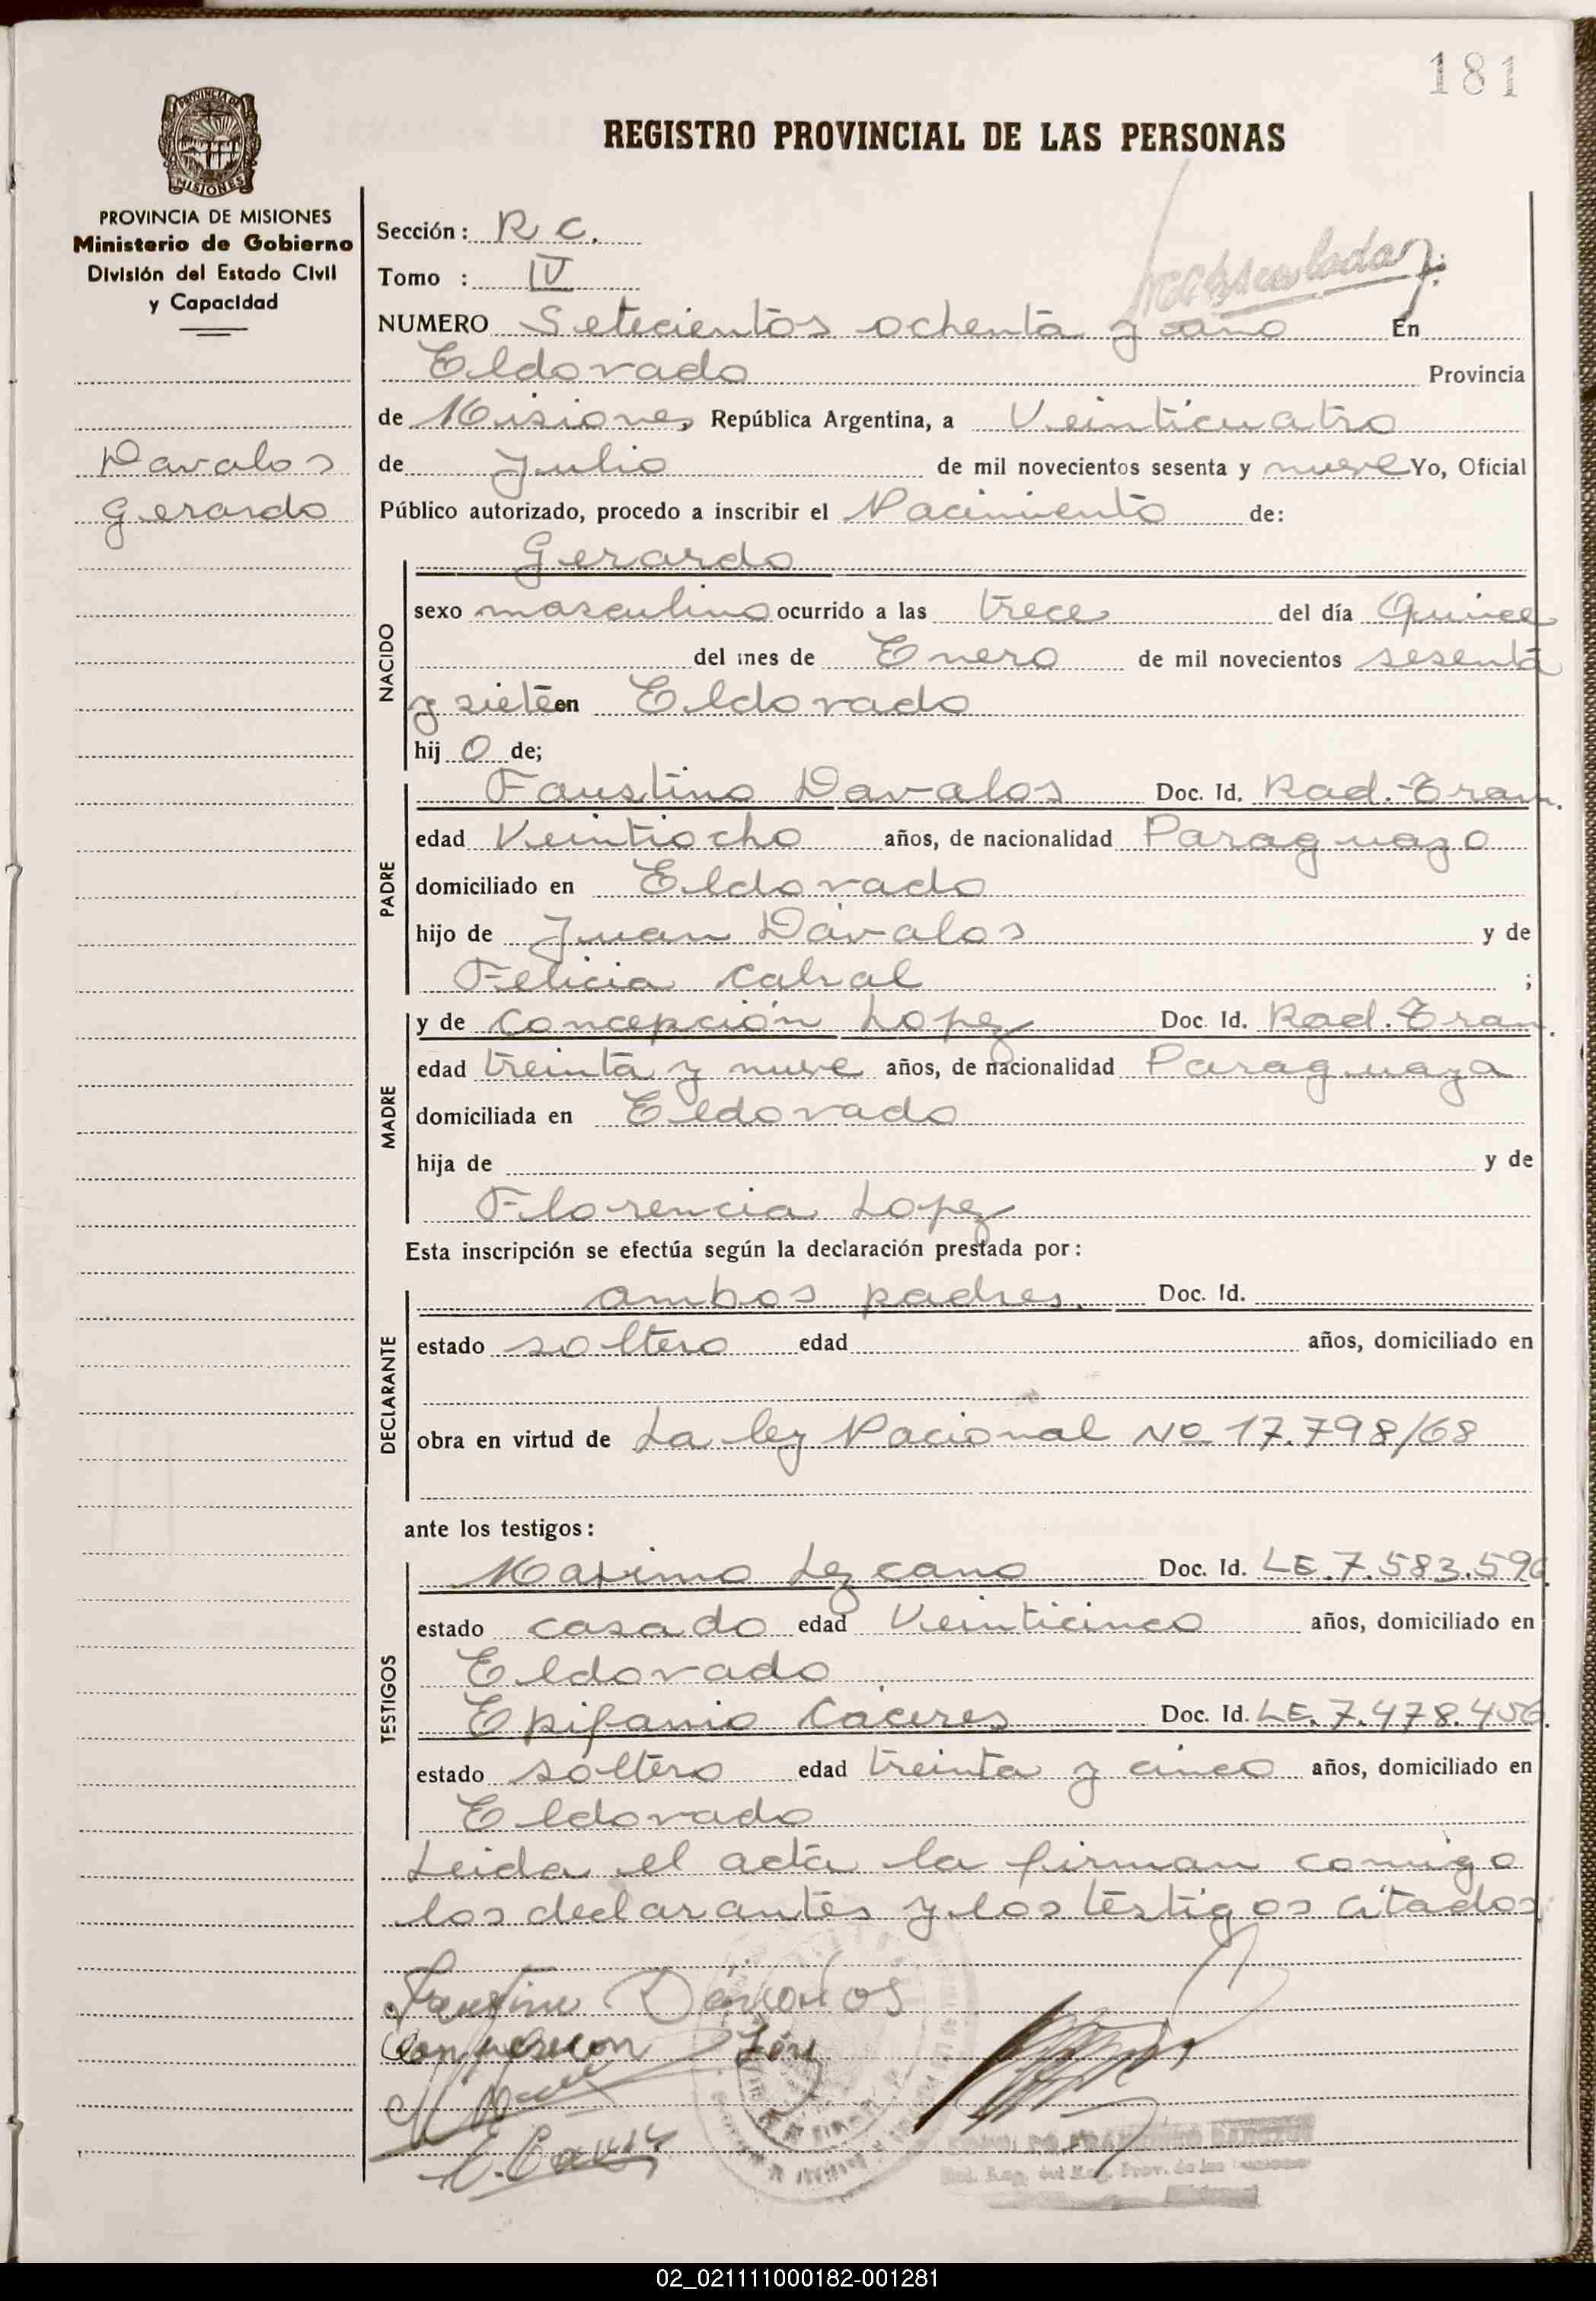 181
REGISTRO PROVINCIAL DE LAS PERSONAS
PROVINCIA DE MISIONES
MISIONES
PROVINCIA DE MISIONES
Ministerio de Gobierno
División del Estado Civil
y Capacidad
Davalos
Gerardo
Sección: R C.
Tomo : IV
NUMERO Setecientos ochenta y uno En
Eldorado Provincia
de Misiones República Argentina, a Veinticuatro
de Julio de mil novecientos sesenta y nueve Yo, Oficial
Público autorizado, procedo a inscribir el Nacimiento de:
NACIDO
Gerardo
sexo masculino ocurrido a las trece del día Quince
del mes de Enero de mil novecientos sesenta
y siete en Eldorado
hij o de;
PADRE
Faustino Davalos Doc. Id. Rad. Tram.
edad Veintiocho años, de nacionalidad Paraguayo
domiciliado en Eldorado
hijo de Juan Dávalos y de
Felicia Cabral ;
MADRE
y de Concepción Lopez Doc. Id. Rad. Tram.
edad treinta y nueve años, de nacionalidad Paraguaya
domiciliada en Eldorado
hija de y de
Florencia Lopez
Esta inscripción se efectúa según la declaración prestada por:
DECLARANTE
ambos padres. Doc. Id.
estado soltero edad años, domiciliado en
obra en virtud de La ley Nacional No 17.798/68
ante los testigos:
TESTIGOS
Maximo Lezcano Doc. Id. LE.7.583.596
estado casado edad Veinticinco años, domiciliado en
Eldorado
Epifanio Cáceres Doc. Id. LE.7.478.456.
estado soltero edad treinta y cinco años, domiciliado en
Eldorado
Leida el acta la firman comigo
los declarantes y los testigos citados
Faustino Dávalos
02_021111000182-001281